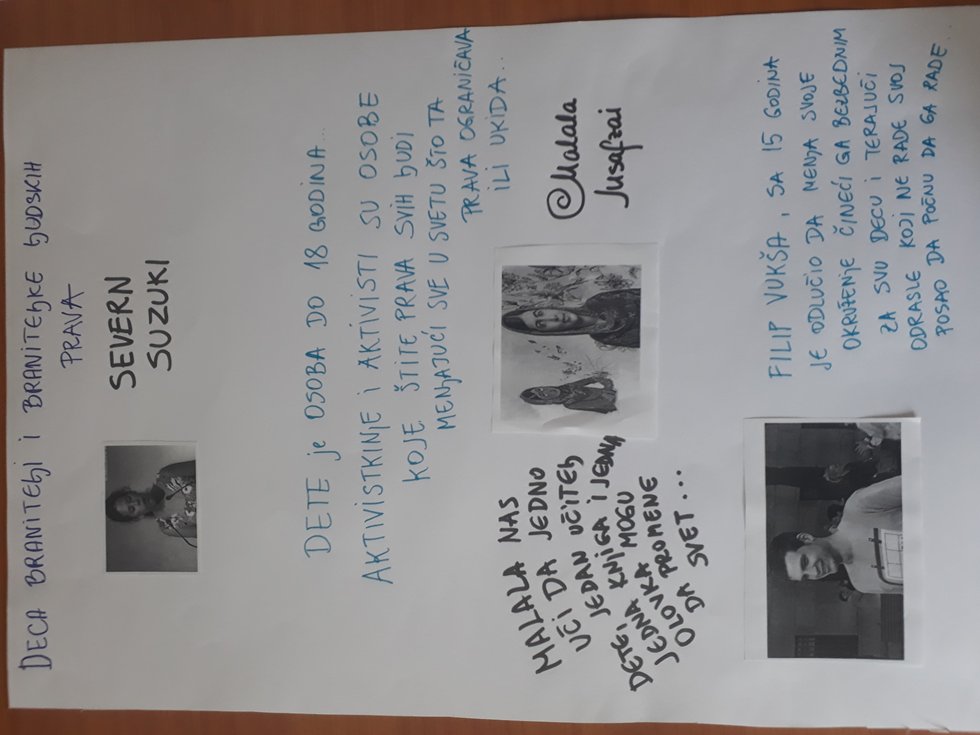 DECA BRANITEЉI I BRANITEЉKE ЉUDSKIH
PRAVA
SEVERN
SUZUKI
DETE je OSOBA DO 18 GODINA...
AKTIVISTKINJE I AKTIVISTI SU OSOBE
KOJE ŠTITE PRAVA SVIH ЉUDI
MENJAJUĆI SVE U SVETU ŠTO TA
PRAVA OGRANIČAVA
ILI UKIDA..
Malala
Jusafzai
MALALA NAS
UČI DA JEDNO
DETE, JEDAN UČITEЉ
JEDNA KNJIGA I JEDNA
OLOVKA MOGU
DA PROMENE
SVET...
FILIP VUKŠA, SA 15 GODINA
JE ODLUČIO DA MENJA SVOJE
OKRUŽENJE ČINEĆI GA BEZBEDNIM
ZA SVU DECU I TERAJUĆI
ODRASLE KOJI NE RADE SVOJ
POSAO DA POČNU DA GA RADE...